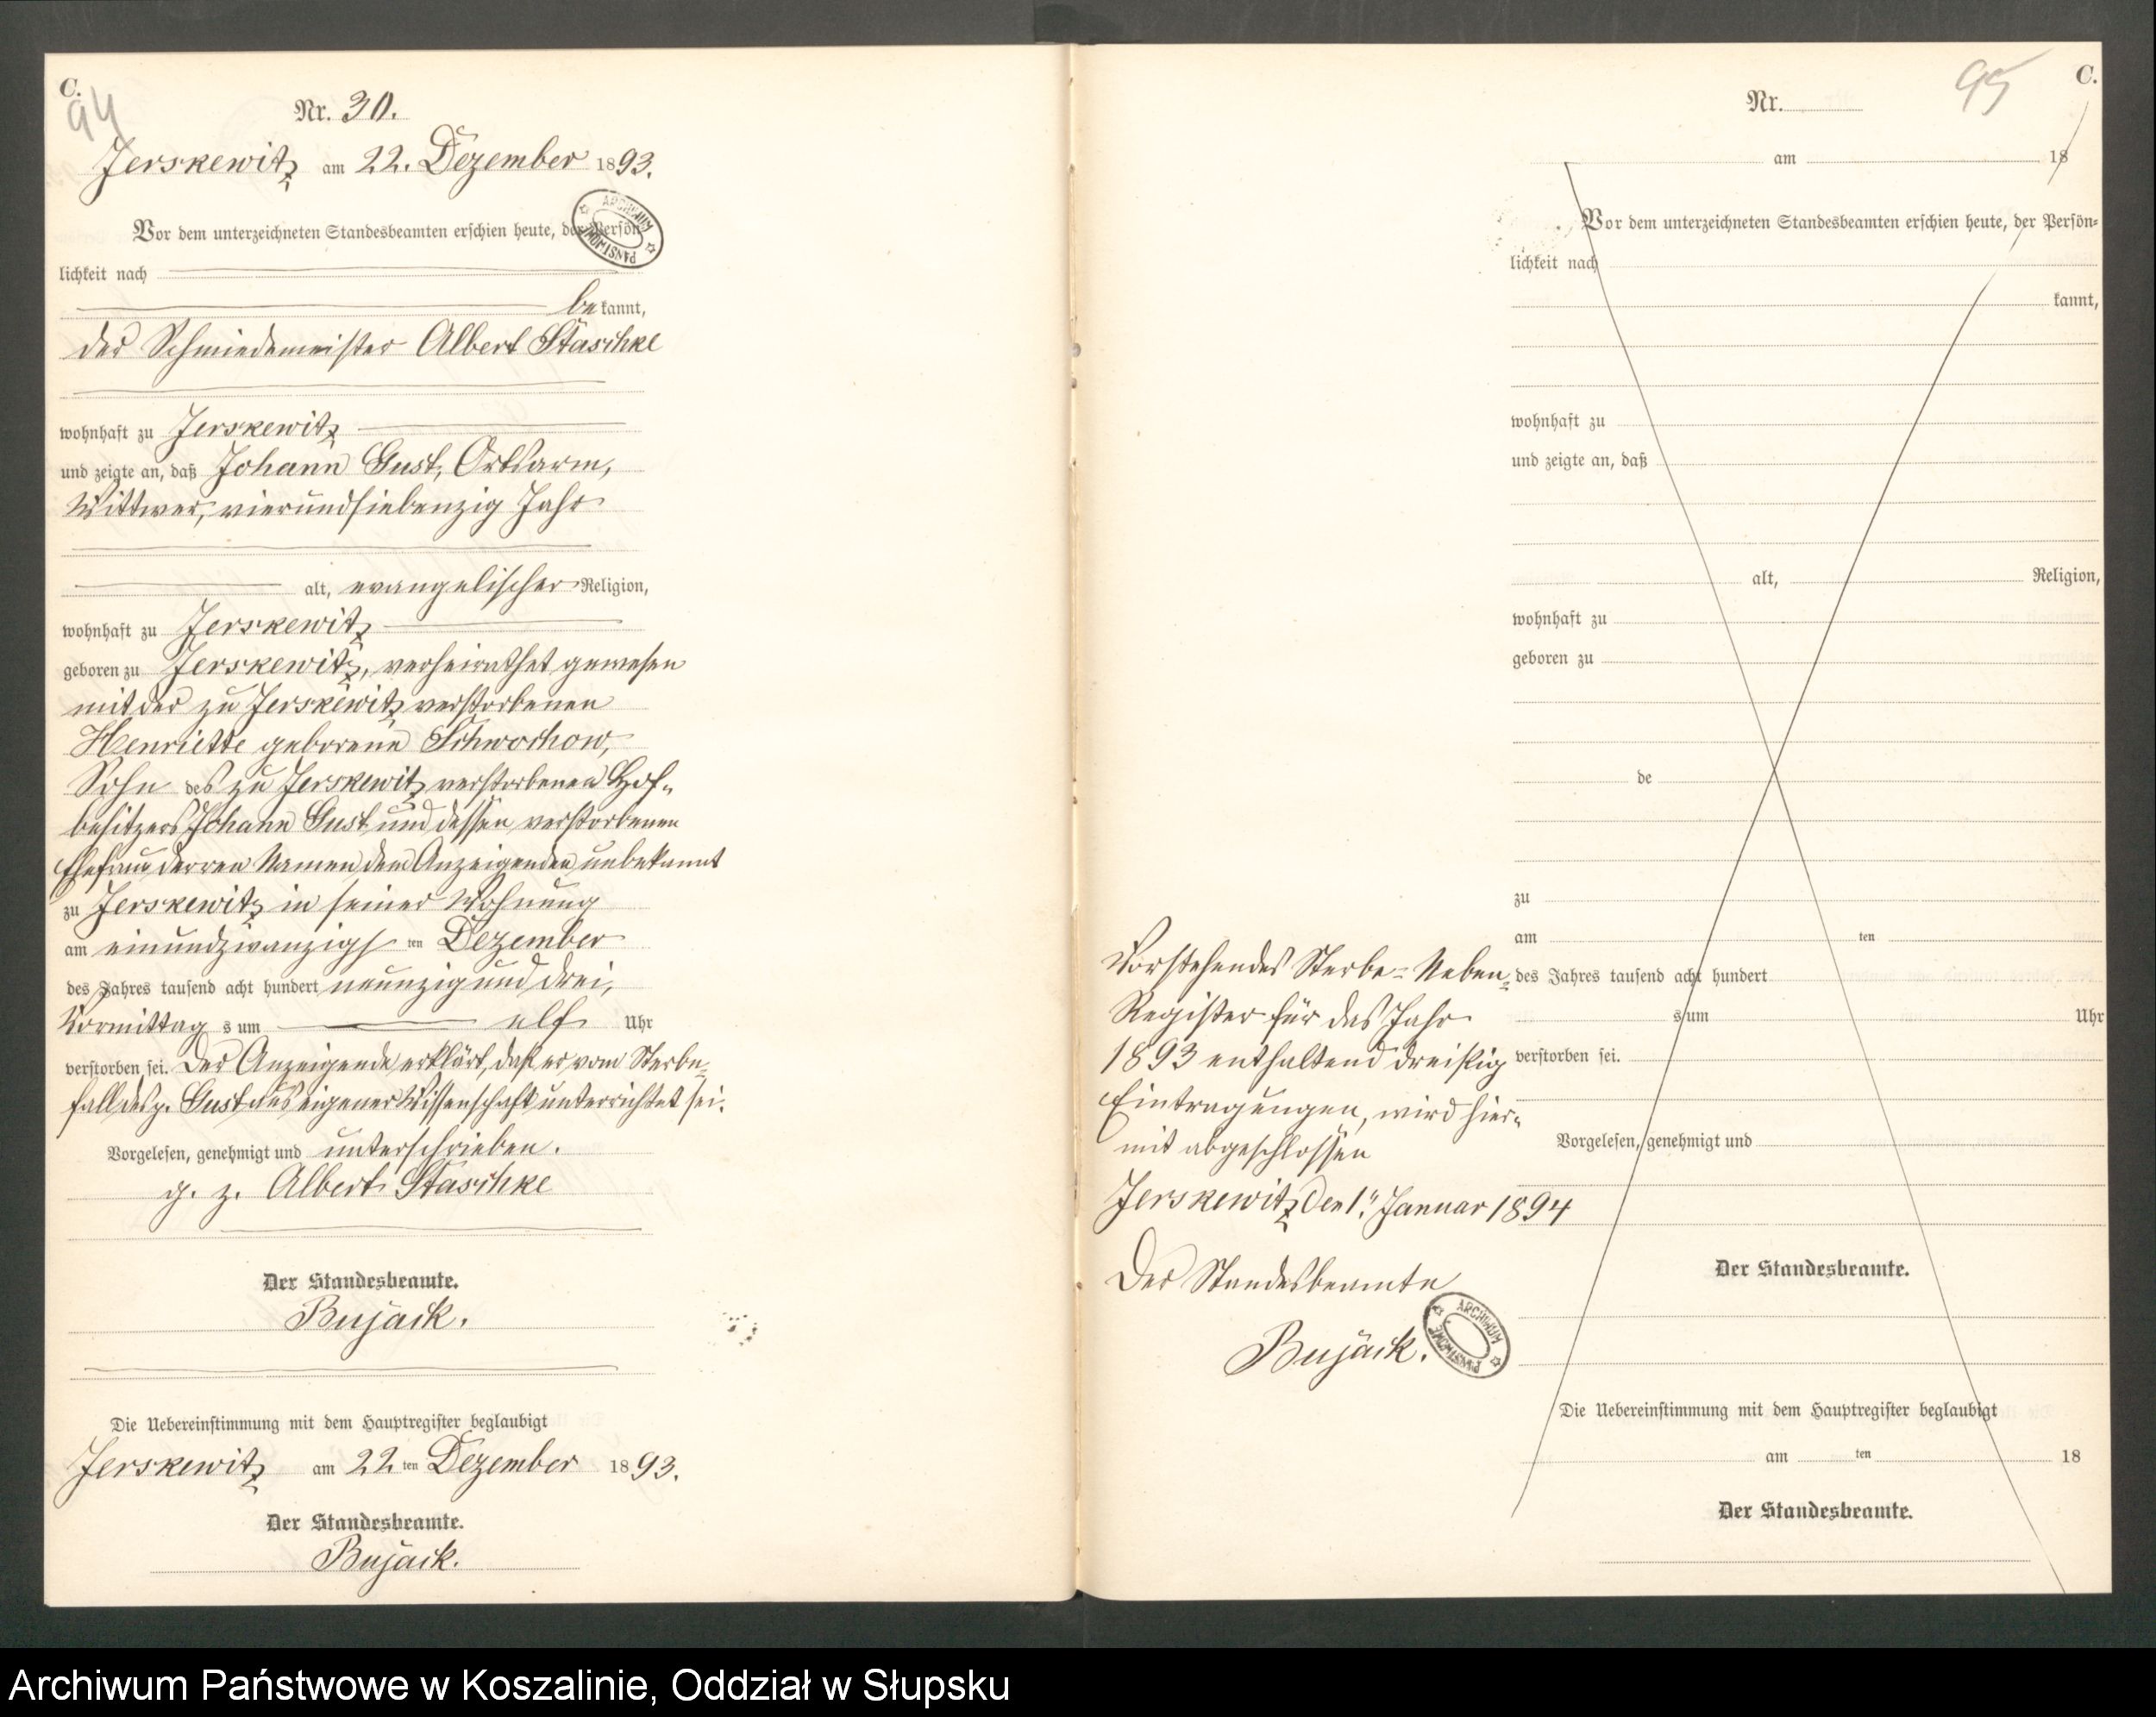 C.
94
Nr. 30.
Jerskewitz am 22. Dezember 1893.
Vor dem unterzeichneten Standesbeamten erschien heute, der Persön-
lichkeit nach
bekannt,
der Schmiedemeister Albert Staschke
wohnhaft zu Jerskewitz
und zeigte an, daß Johann Gust, Ortsarm,
Wittwer, vierundsiebenzig Jahr
alt, evangelischer Religion,
wohnhaft zu Jerskewitz
geboren zu Jerskewitz, verheirathet gewesen
mit der zu Jerskewitz verstorbenen
Henriette geborene Schwochow,
Sohn des zu Jerskewitz verstorbenen Hof-
besitzers Johann Gust und dessen verstorbenen
Ehefrau derren Namen dem Anzeigenden unbekannt
zu Jerskewitz in seiner Wohnung
am einundzwanzigsten Dezember
des Jahres tausend acht hundert neunzig und drei,
Vormittags um elf Uhr
verstorben sei. Der Anzeigende erklärt, daß er vom Sterbe-
fall des p. Gust aus eigener Wissenschaft unterrichtet sei.
Vorgelesen, genehmigt und unterschrieben.
g. z. Albert Staschke
Der Standesbeamte.
Bujack.
Die Uebereinstimmung mit dem Hauptregister beglaubigt
Jerskewitz am 22.ten Dezember 1893.
Der Standesbeamte.
Bujack.
ARCHIWUM PAŃSTWOWE
95
C.
Nr.
am 18
Vor dem unterzeichneten Standesbeamten erschien heute, der Persön-
lichkeit nach
kannt,
wohnhaft zu
und zeigte an, daß
alt, Religion,
wohnhaft zu
geboren zu
de
zu
am ten
des Jahres tausend acht hundert
s um Uhr
verstorben sei.
Vorgelesen, genehmigt und
Der Standesbeamte.
Die Uebereinstimmung mit dem Hauptregister beglaubigt
am ten 18
Der Standesbeamte.
Vorstehendes Sterbe-Neben-
Register für das Jahr
1893 enthaltend dreißig
Eintragungen, wird hier-
mit abgeschlossen
Jerskewitz den 1. Januar 1894
Der Standesbeamte
Bujack.
ARCHIWUM PAŃSTWOWE
Archiwum Państwowe w Koszalinie, Oddział w Słupsku